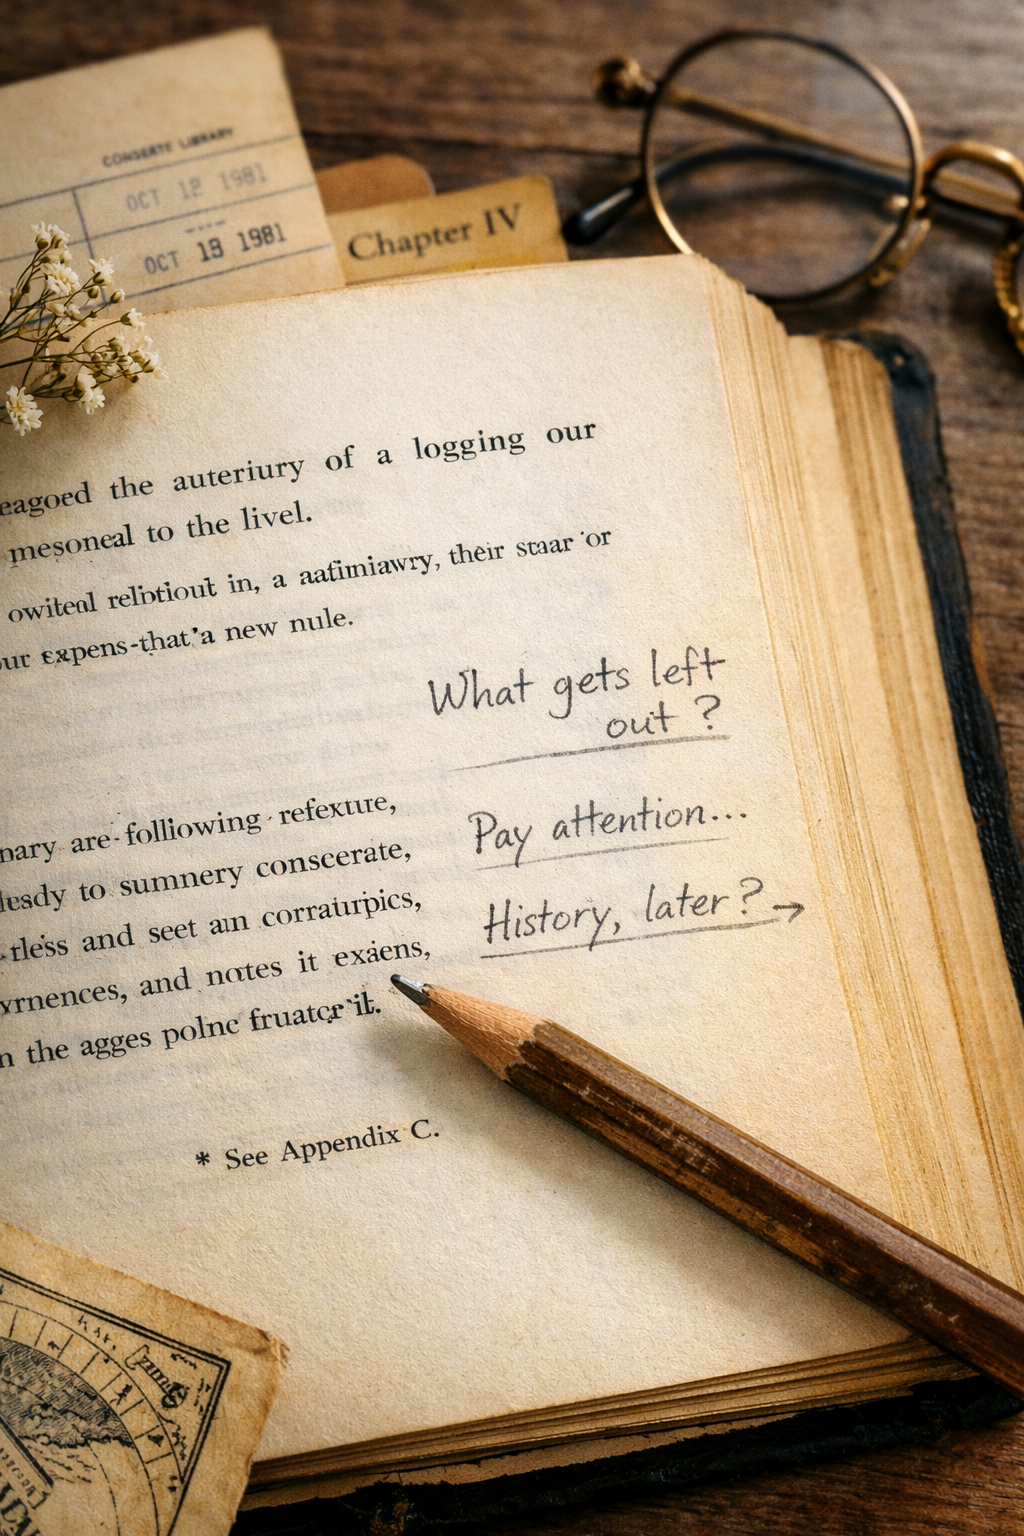 CONSERTE LIBRARY
OCT 12 1981
OCT 13 1981
Chapter IV
eagoed the auteriury of a logging our
mesoneal to the livel.
owiteal relibtiout in, a aatimiawry, their staar or
our expens-that'a new nule.
What gets left
out ?
nary are-folliowing refexture,
lesdy to sumnery conscerate,
tless and seet aın corraturpics,
yrnences, and notes it exäens,
n the agges polnc fruatcr'it.
Pay attention...
History, later? →
* See Appendix C.